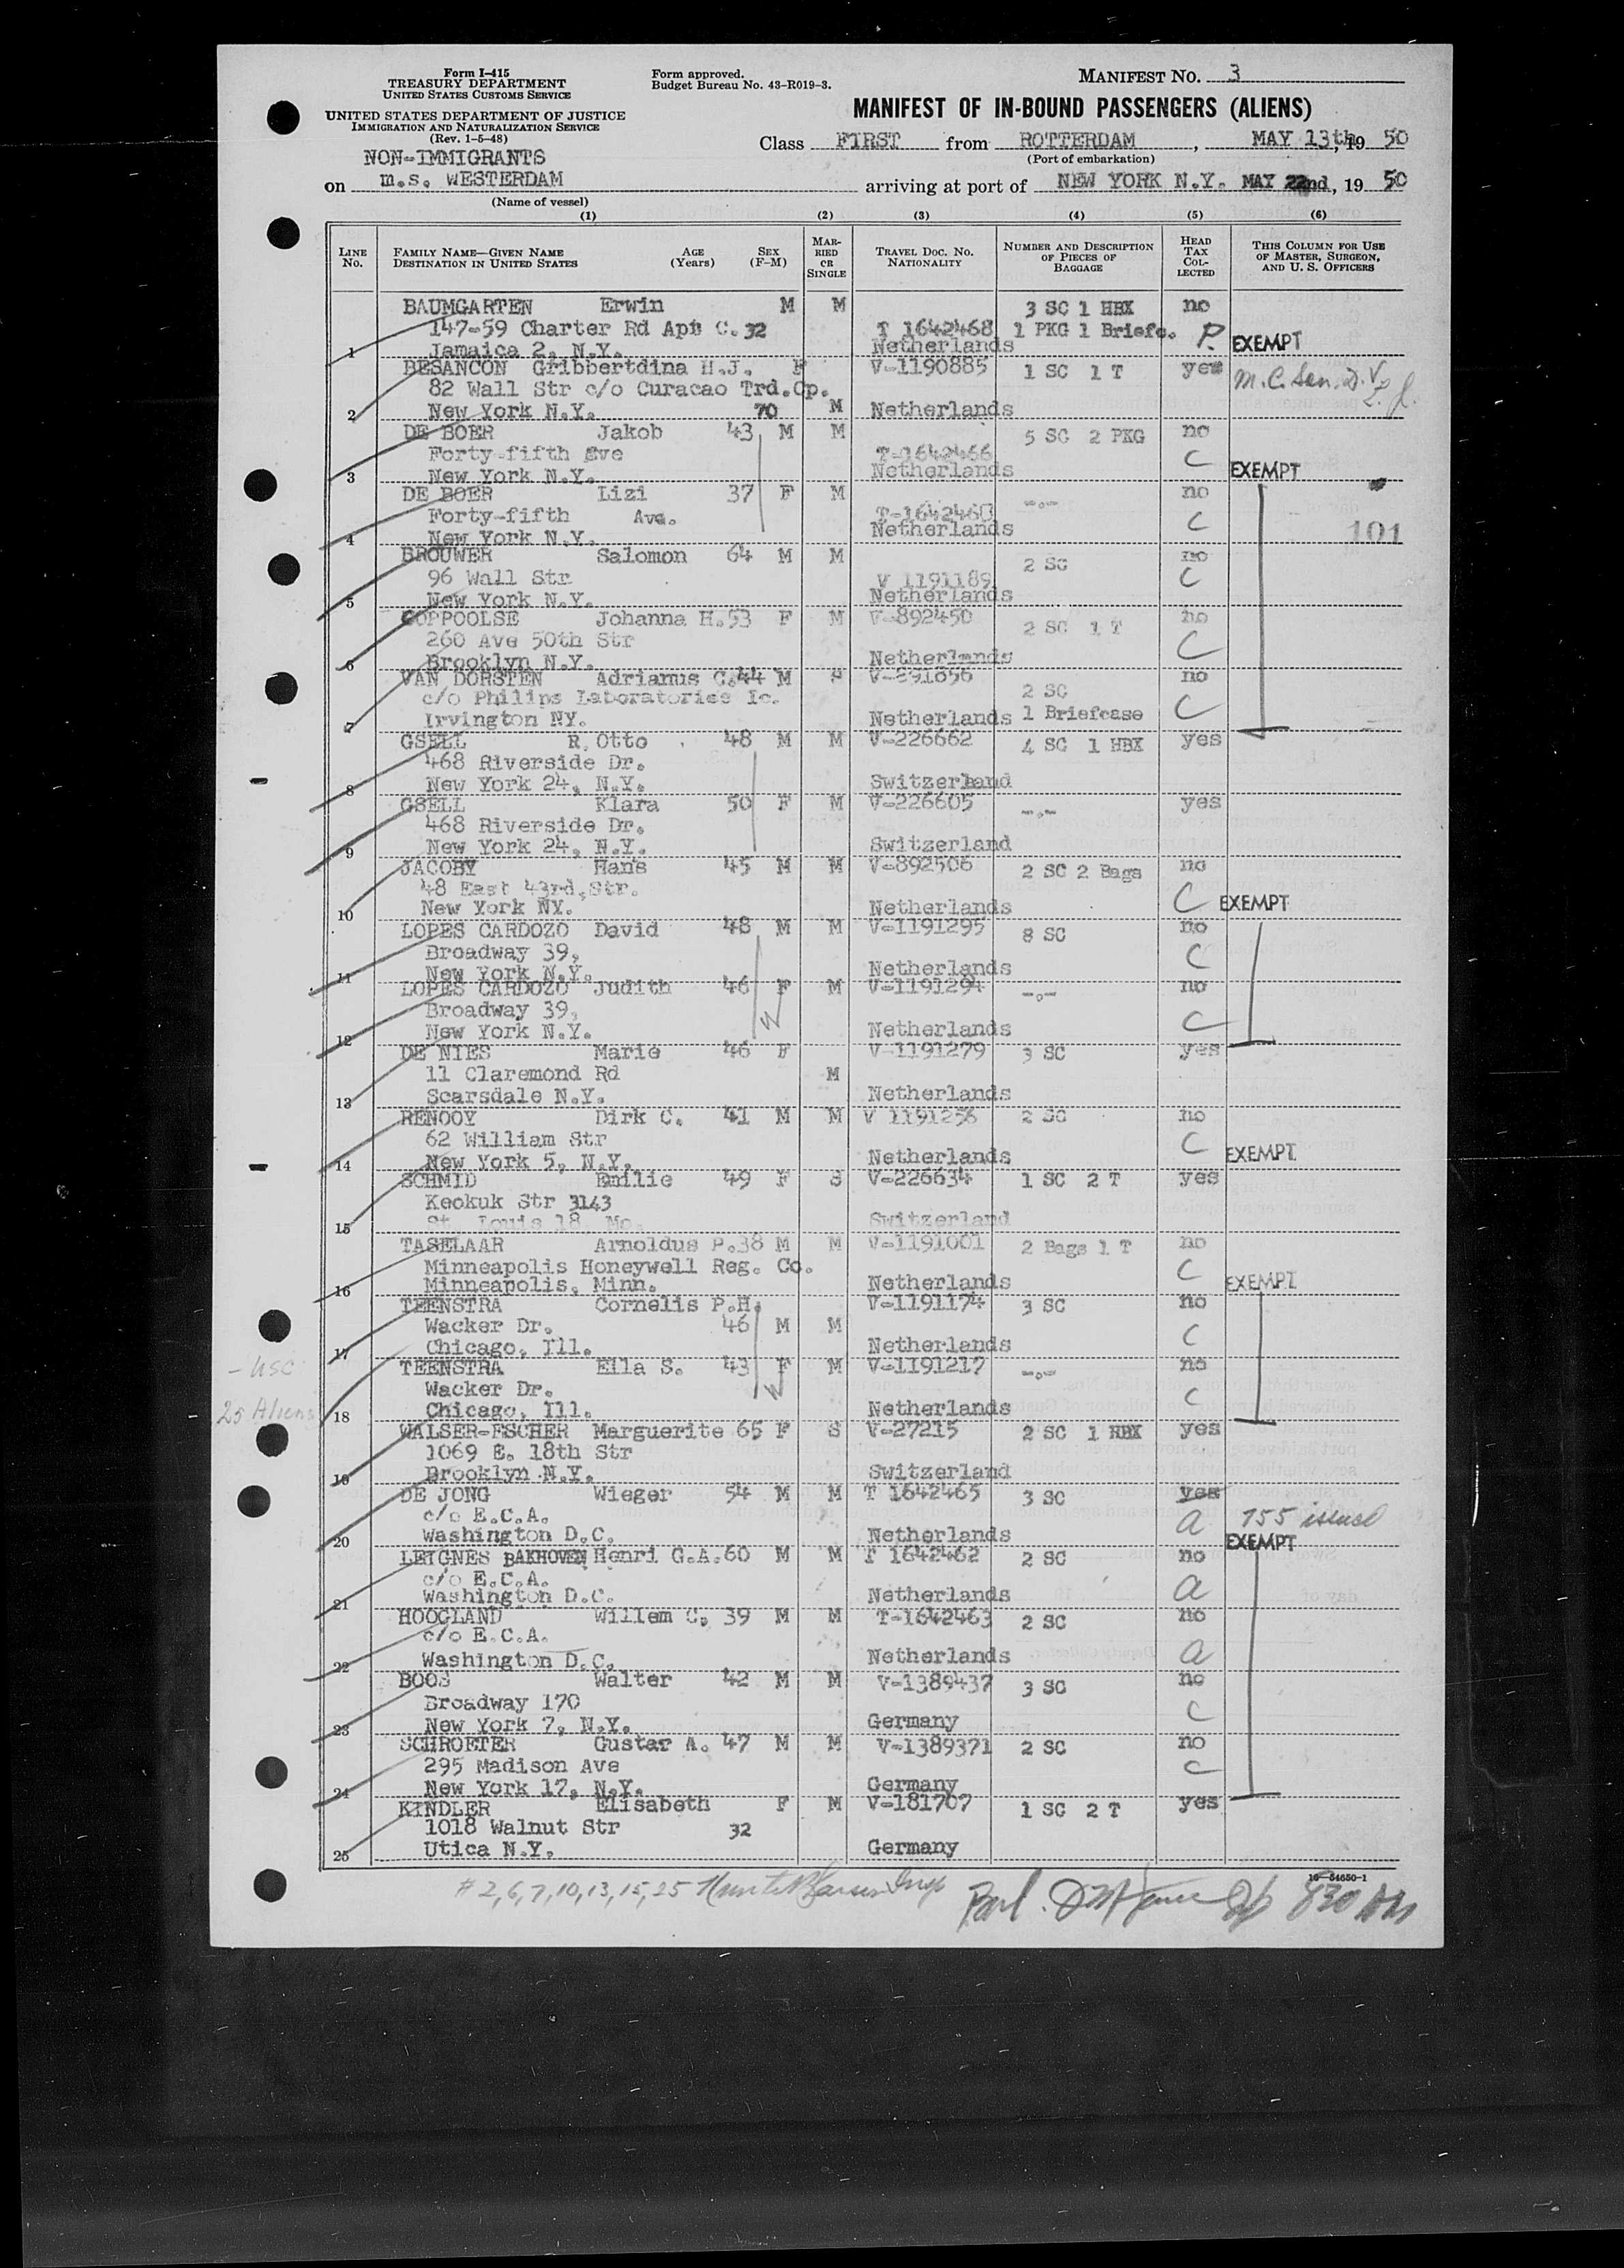 Form I-415
TREASURY DEPARTMENT
UNITED STATES CUSTOMS SERVICE
UNITED STATES DEPARTMENT OF JUSTICE
IMMIGRATION AND NATURALIZATION SERVICE
(Rev. 1-5-48)
Form approved.
Budget Bureau No. 43-R019-3.
MANIFEST NO. 3
MANIFEST OF IN-BOUND PASSENGERS (ALIENS)
Class FIRST from ROTTERDAM, MAY 13th, 19 50
(Port of embarkation)
NON-IMMIGRANTS
on m.s. WESTERDAM arriving at port of NEW YORK N.Y. MAY 22nd, 19 50
(Name of vessel)
(1) (2) (3) (4) (5) (6)
LINE No. FAMILY NAME—GIVEN NAME DESTINATION IN UNITED STATES AGE (Years) SEX (F-M) MARRIED OR SINGLE TRAVEL DOC. NO. NATIONALITY NUMBER AND DESCRIPTION OF PIECES OF BAGGAGE HEAD TAX COLLECTED THIS COLUMN FOR USE OF MASTER, SURGEON, AND U. S. OFFICERS
BAUMGARTEN Erwin M M 3 SC 1 HBX no
147-59 Charter Rd Apt C. 32 T 1642468 1 PKG 1 Briefc. P. EXEMPT
1 Jamaica 2, N.Y. Netherlands
BESANCON Gribbertdina H.J. F V-1190885 1 SC 1 T yes
82 Wall Str c/o Curacao Trd.Cp. M.C. Sen. D.V.
2 New York N.Y. 70 M Netherlands
DE BOER Jakob 43 M M 5 SC 2 PKG no
Forty-fifth Ave T-1642466 C EXEMPT
3 New York N.Y. Netherlands
DE BOER Lizi 37 F M -.- no
Forty-fifth Ave. T-1642460 C 101
4 New York N.Y. Netherlands
BROUWER Salomon 64 M M 2 SC no
96 Wall Str V 1191189 C
5 New York N.Y. Netherlands
COPPOOLSE Johanna H. 53 F M V-892450 2 SC 1 T no
260 Ave 50th Str C
6 Brooklyn N.Y. Netherlands
VAN DORSTEN Adrianus C. 44 M S V-291656 2 SC no
c/o Philips Laboratories Ic.
7 Irvington NY. Netherlands 1 Briefcase C
GSELL R. Otto 48 M M V-226662 4 SC 1 HBX yes
468 Riverside Dr.
8 New York 24, N.Y. Switzerland
GSELL Klara 50 F M V-226605 -.- yes
468 Riverside Dr.
9 New York 24, N.Y. Switzerland
JACOBY Hans 45 M M V-892506 2 SC 2 Bags no
48 East 43rd,Str.
10 New York NY. Netherlands C EXEMPT
LOPES CARDOZO David 48 M M V-1191295 8 SC no
Broadway 39, C
11 New York N.Y. Netherlands
LOPES CARDOZO Judith 46 F M V-1191294 -.- no
Broadway 39, W C
12 New York N.Y. Netherlands
DE NIES Marie 46 F V-1191279 3 SC yes
11 Claremond Rd M
13 Scarsdale N.Y. Netherlands
RENOOY Dirk C. 41 M M V 1191256 2 SC no
62 William Str C
14 New York 5, N.Y. Netherlands EXEMPT
SCHMID Emilie 49 F S V-226634 1 SC 2 T yes
Keokuk Str 3143
15 St. Louis 18, Mo. Switzerland
TASELAAR Arnoldus P. 38 M M V-1191001 2 Bags 1 T no
Minneapolis Honeywell Reg. Co. C
16 Minneapolis, Minn. Netherlands EXEMPT
TEENSTRA Cornelis P.H. V-1191174 3 SC no
Wacker Dr. 46 M M C
17 Chicago, Ill. Netherlands
- USC
TEENSTRA Ella S. 43 F M V-1191217 -.- no
Wacker Dr. W C
25 Aliens
18 Chicago, Ill. Netherlands
WALSER-FSCHER Marguerite 65 F S V-27215 2 SC 1 HBX yes
1069 E. 18th Str
19 Brooklyn N.Y. Switzerland
DE JONG Wieger 54 M M T 1642465 3 SC yes
c/o E.C.A. a 755 issued
20 Washington D.C. Netherlands EXEMPT
LEIGNES BAKHOVEN Henri G.A. 60 M M T 1642462 2 SC no
c/o E.C.A. a
21 Washington D.C. Netherlands
HOOGLAND Willem C. 39 M M T-1642463 2 SC no
c/o E.C.A.
22 Washington D.C. Netherlands a
BOOS Walter 42 M M V-1389437 3 SC no
Broadway 170 C
23 New York 7, N.Y. Germany
SCHROETER Gustar A. 47 M M V-1389371 2 SC no
295 Madison Ave C
24 New York 17, N.Y. Germany
KINDLER Elisabeth F M V-181707 1 SC 2 T yes
1018 Walnut Str 32
25 Utica N.Y. Germany
16—54650-1
# 2, 6, 7, 10, 13, 15, 25 Insp
830 AM